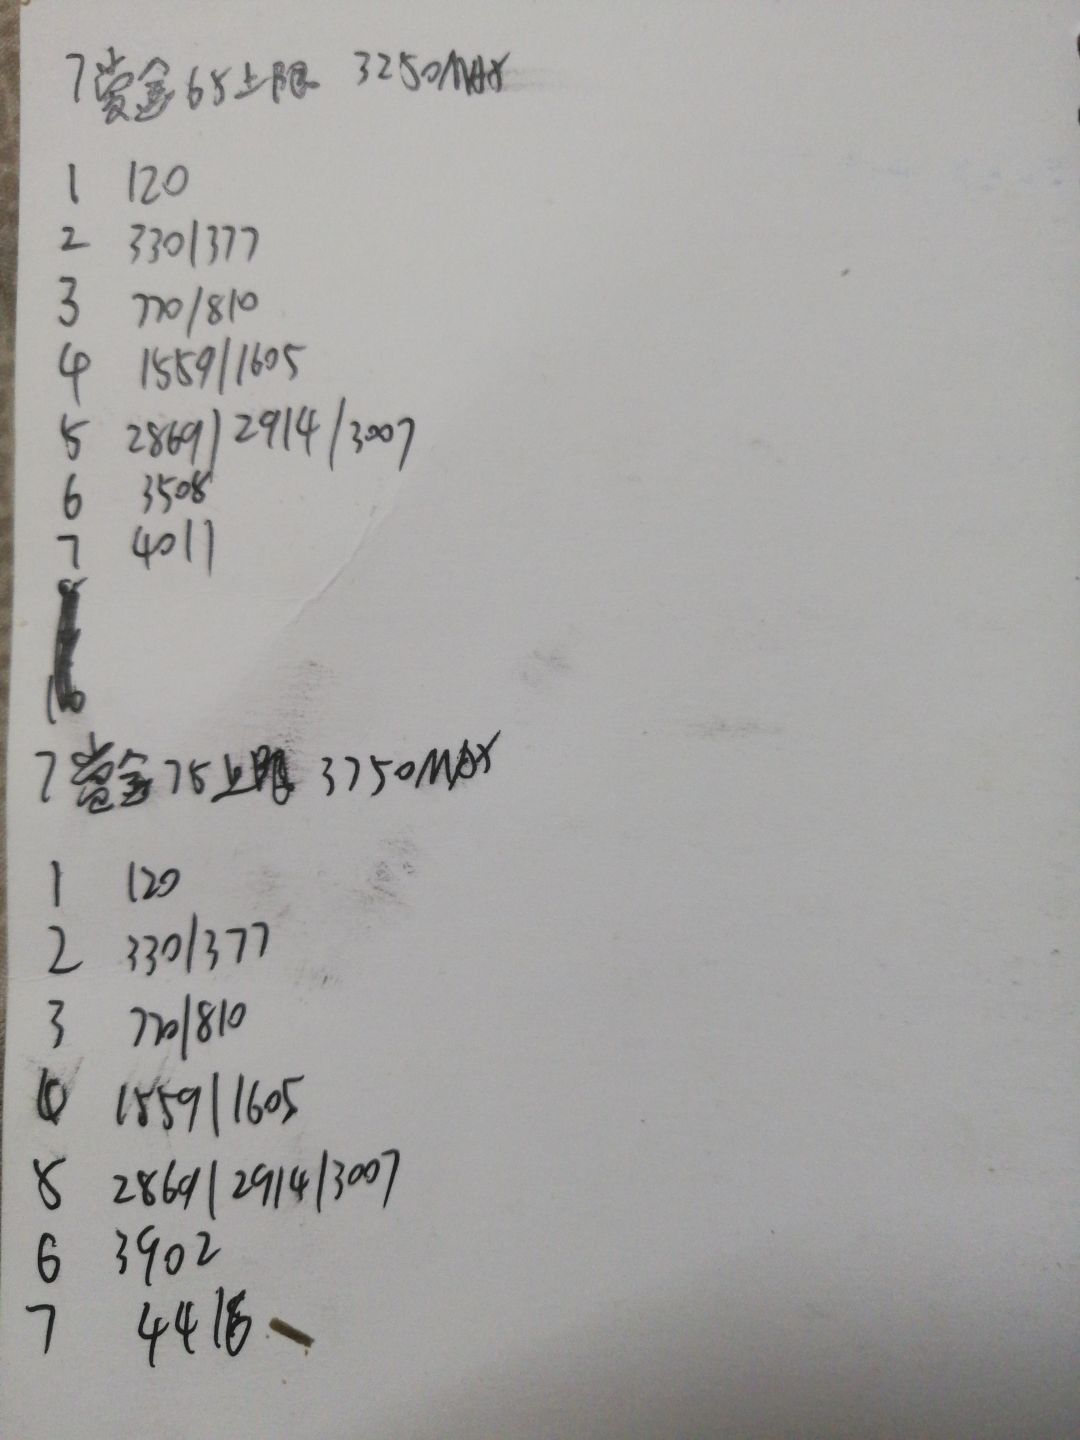 7赏金65上限 3250MAX
1 120
2 330/377
3 770/810
4 1559/1605
5 2869/2914/3007
6 3508
7 4011
7赏金75上限 3750MAX
1 120
2 330/377
3 770/810
4 1559/1605
5 2869/2914/3007
6 3902
7